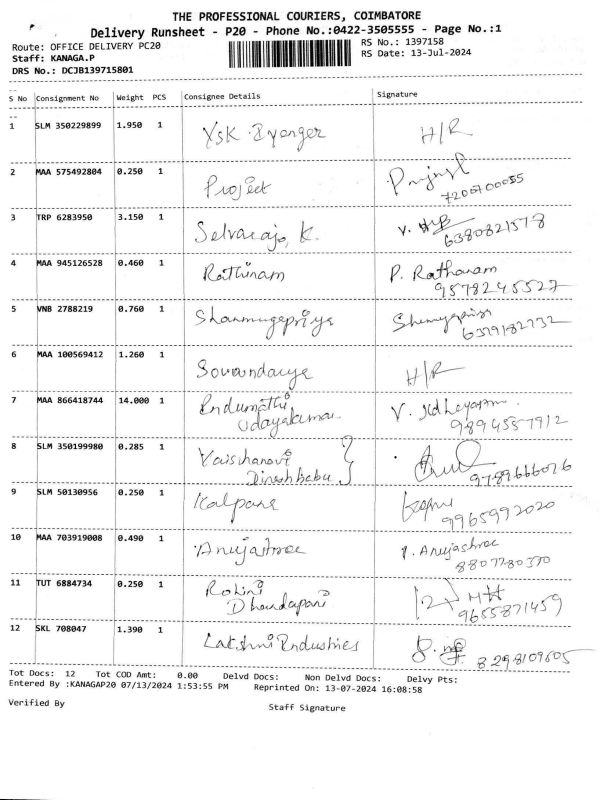 THE PROFESSIONAL COURIERS, COIMBATORE
Delivery Runsheet - P20 - Phone No.:0422-3505555 - Page No.:1
Route: OFFICE DELIVERY PC20
RS No.: 1397158
Staff: KANAGA.P
RS Date: 13-Jul-2024
DRS No.: DCJB139715801
S No Consignment No Weight PCS Consignee Details Signature
1 SLM 350229899 1.950 1 YSK Iyenger H/R
2 MAA 575492804 0.250 1 Project
7200700055
3 TRP 6283950 3.150 1 Selvaraja, K. V.
6380821578
4 MAA 945126528 0.460 1 Rathinam P. Rathanam
9578245527
5 VNB 2788219 0.760 1 Shanmugapriya
6379182732
6 MAA 100569412 1.260 1 Sowandarya H/R
7 MAA 866418744 14.000 1 Indumathi V.
Udayakumar 9894557912
8 SLM 350199980 0.285 1 Vaishanavi
Dineshbabu 9789666026
9 SLM 50130956 0.250 1 Kalpana
9965992020
10 MAA 703919008 0.490 1 Anujashree Anujashree
8807780370
11 TUT 6884734 0.250 1 Rohini
Dhandapani 9655871459
12 SKL 708047 1.390 1 Lakshmi Industries
8298109605
Tot Docs: 12 Tot COD Amt: 0.00 Delvd Docs: Non Delvd Docs: Delvy Pts:
Entered By :KANAGAP20 07/13/2024 1:53:55 PM Reprinted On: 13-07-2024 16:08:58
Verified By
Staff Signature